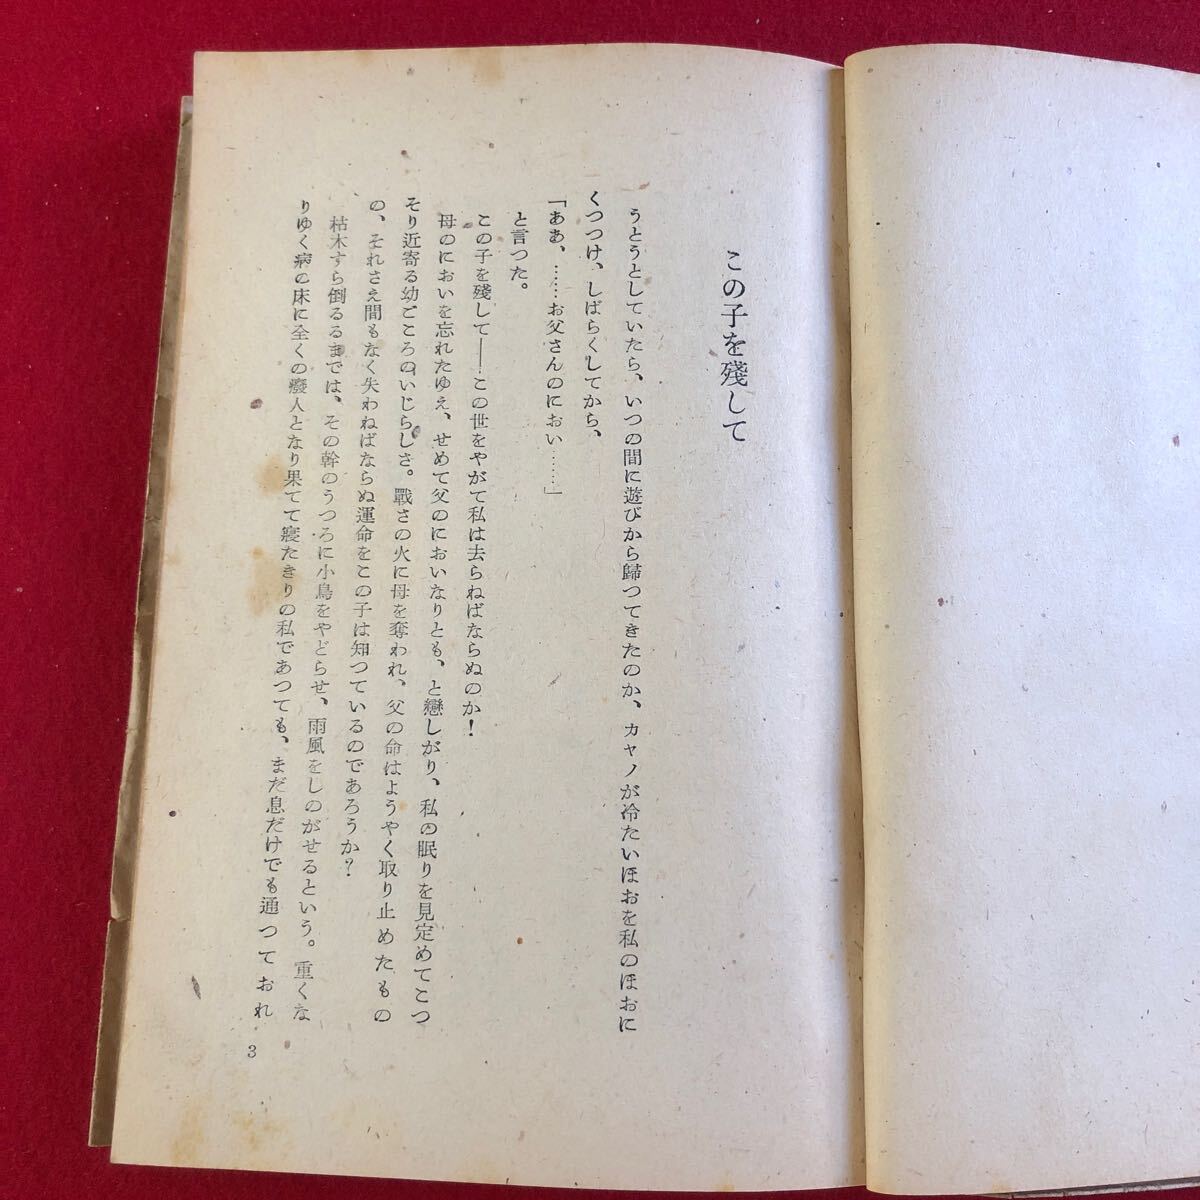 この子を殘して
うとうとしていたら、いつの間に遊びから歸つてきたのか、カヤノが冷たいほおを私のほおに
くつつけ、しばらくしてから、
「ああ、……お父さんのにおい……」
と言つた。
この子を殘して――この世をやがて私は去らねばならぬのか！
母のにおいを忘れたゆえ、せめて父のにおいなりとも、と戀しがり、私の眠りを見定めてこつ
そり近寄る幼ごころのいじらしさ。戰さの火に母を奪われ、父の命はようやく取り止めたもの
の、それさえ間もなく失わねばならぬ運命をこの子は知つているのであろうか？
枯木すら倒るるまでは、その幹のうつろに小鳥をやどらせ、雨風をしのがせるという。重くな
りゆく病の床に全くの癈人となり果てて寢たきりの私であつても、まだ息だけでも通つておれ
3